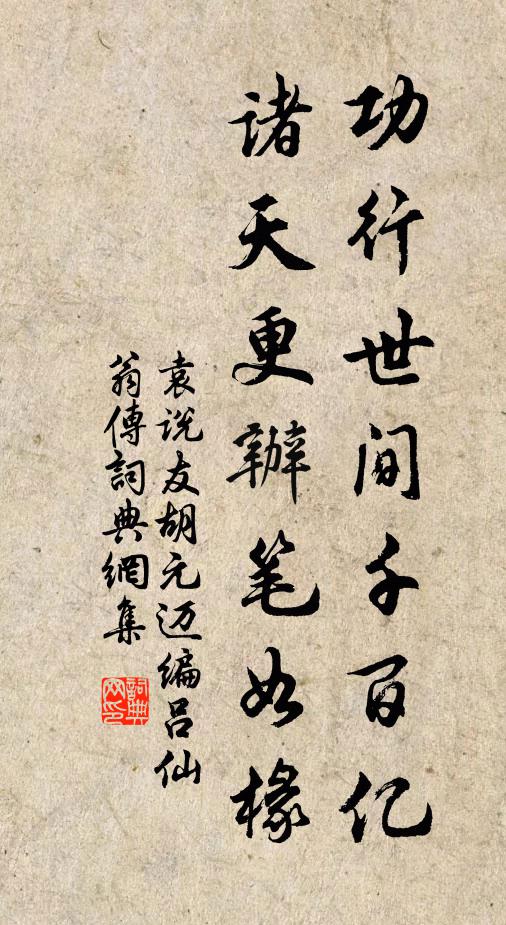 功行世间千百亿
诸天更辦笔如椽
袁说友胡元迈编吕仙
翁傳詞典網集
詞典網印